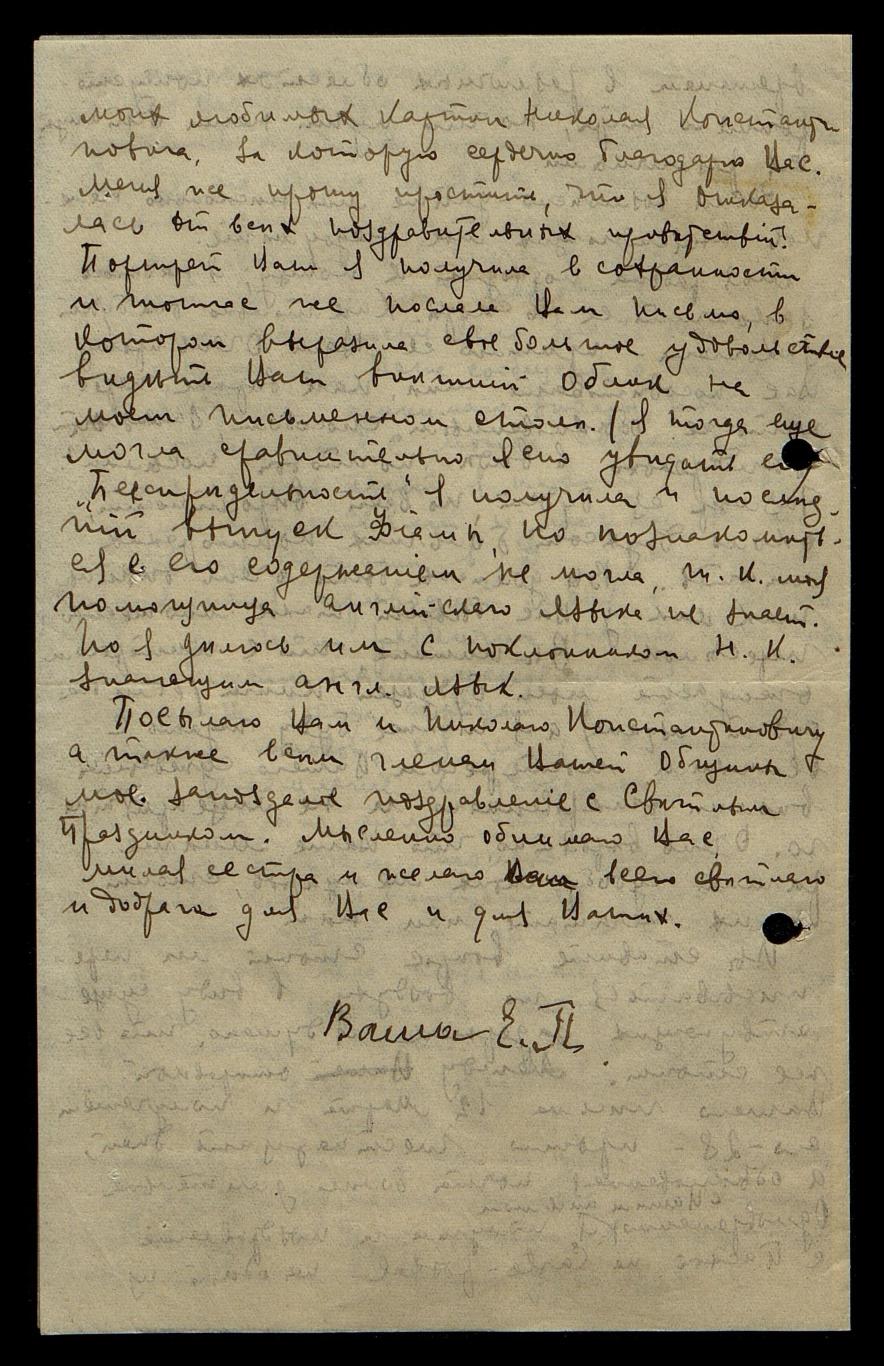 моих любимых картин Николая Константи
новича, за которую сердечно благодарю Вас.
Меня же прошу простить, что я отказа-
лась от всех поздравительных приветствій.
Портрет Ваш я получила в сохранности
и тотчас же послала Вам письмо, в
котором выразила свое большое удовольствіе
видѣть Ваш внѣшній облик на
моем письменном столѣ. (Я тогда еще
могла сравнительно ясно увидать его)
"Безпредѣльность" я получила и послѣд-
ній выпуск но познакомить-
ся с его содержаніем не могла, т. к. моя
помощница англійскаго языка не знает.
Но я дѣлюсь им с поклонником Н. К.
знающим англ. язык.
Посылаю Вам и Николаю Константиновичу
а также всѣм членам Вашей Общины
мое запоздалое поздравленіе с Свѣтлым
Праздником. Мысленно обнимаю Вас,
милая сестра и желаю Вам всего свѣтлаго
и добраго для Вас и для Ваших.
Ваша Е. П.